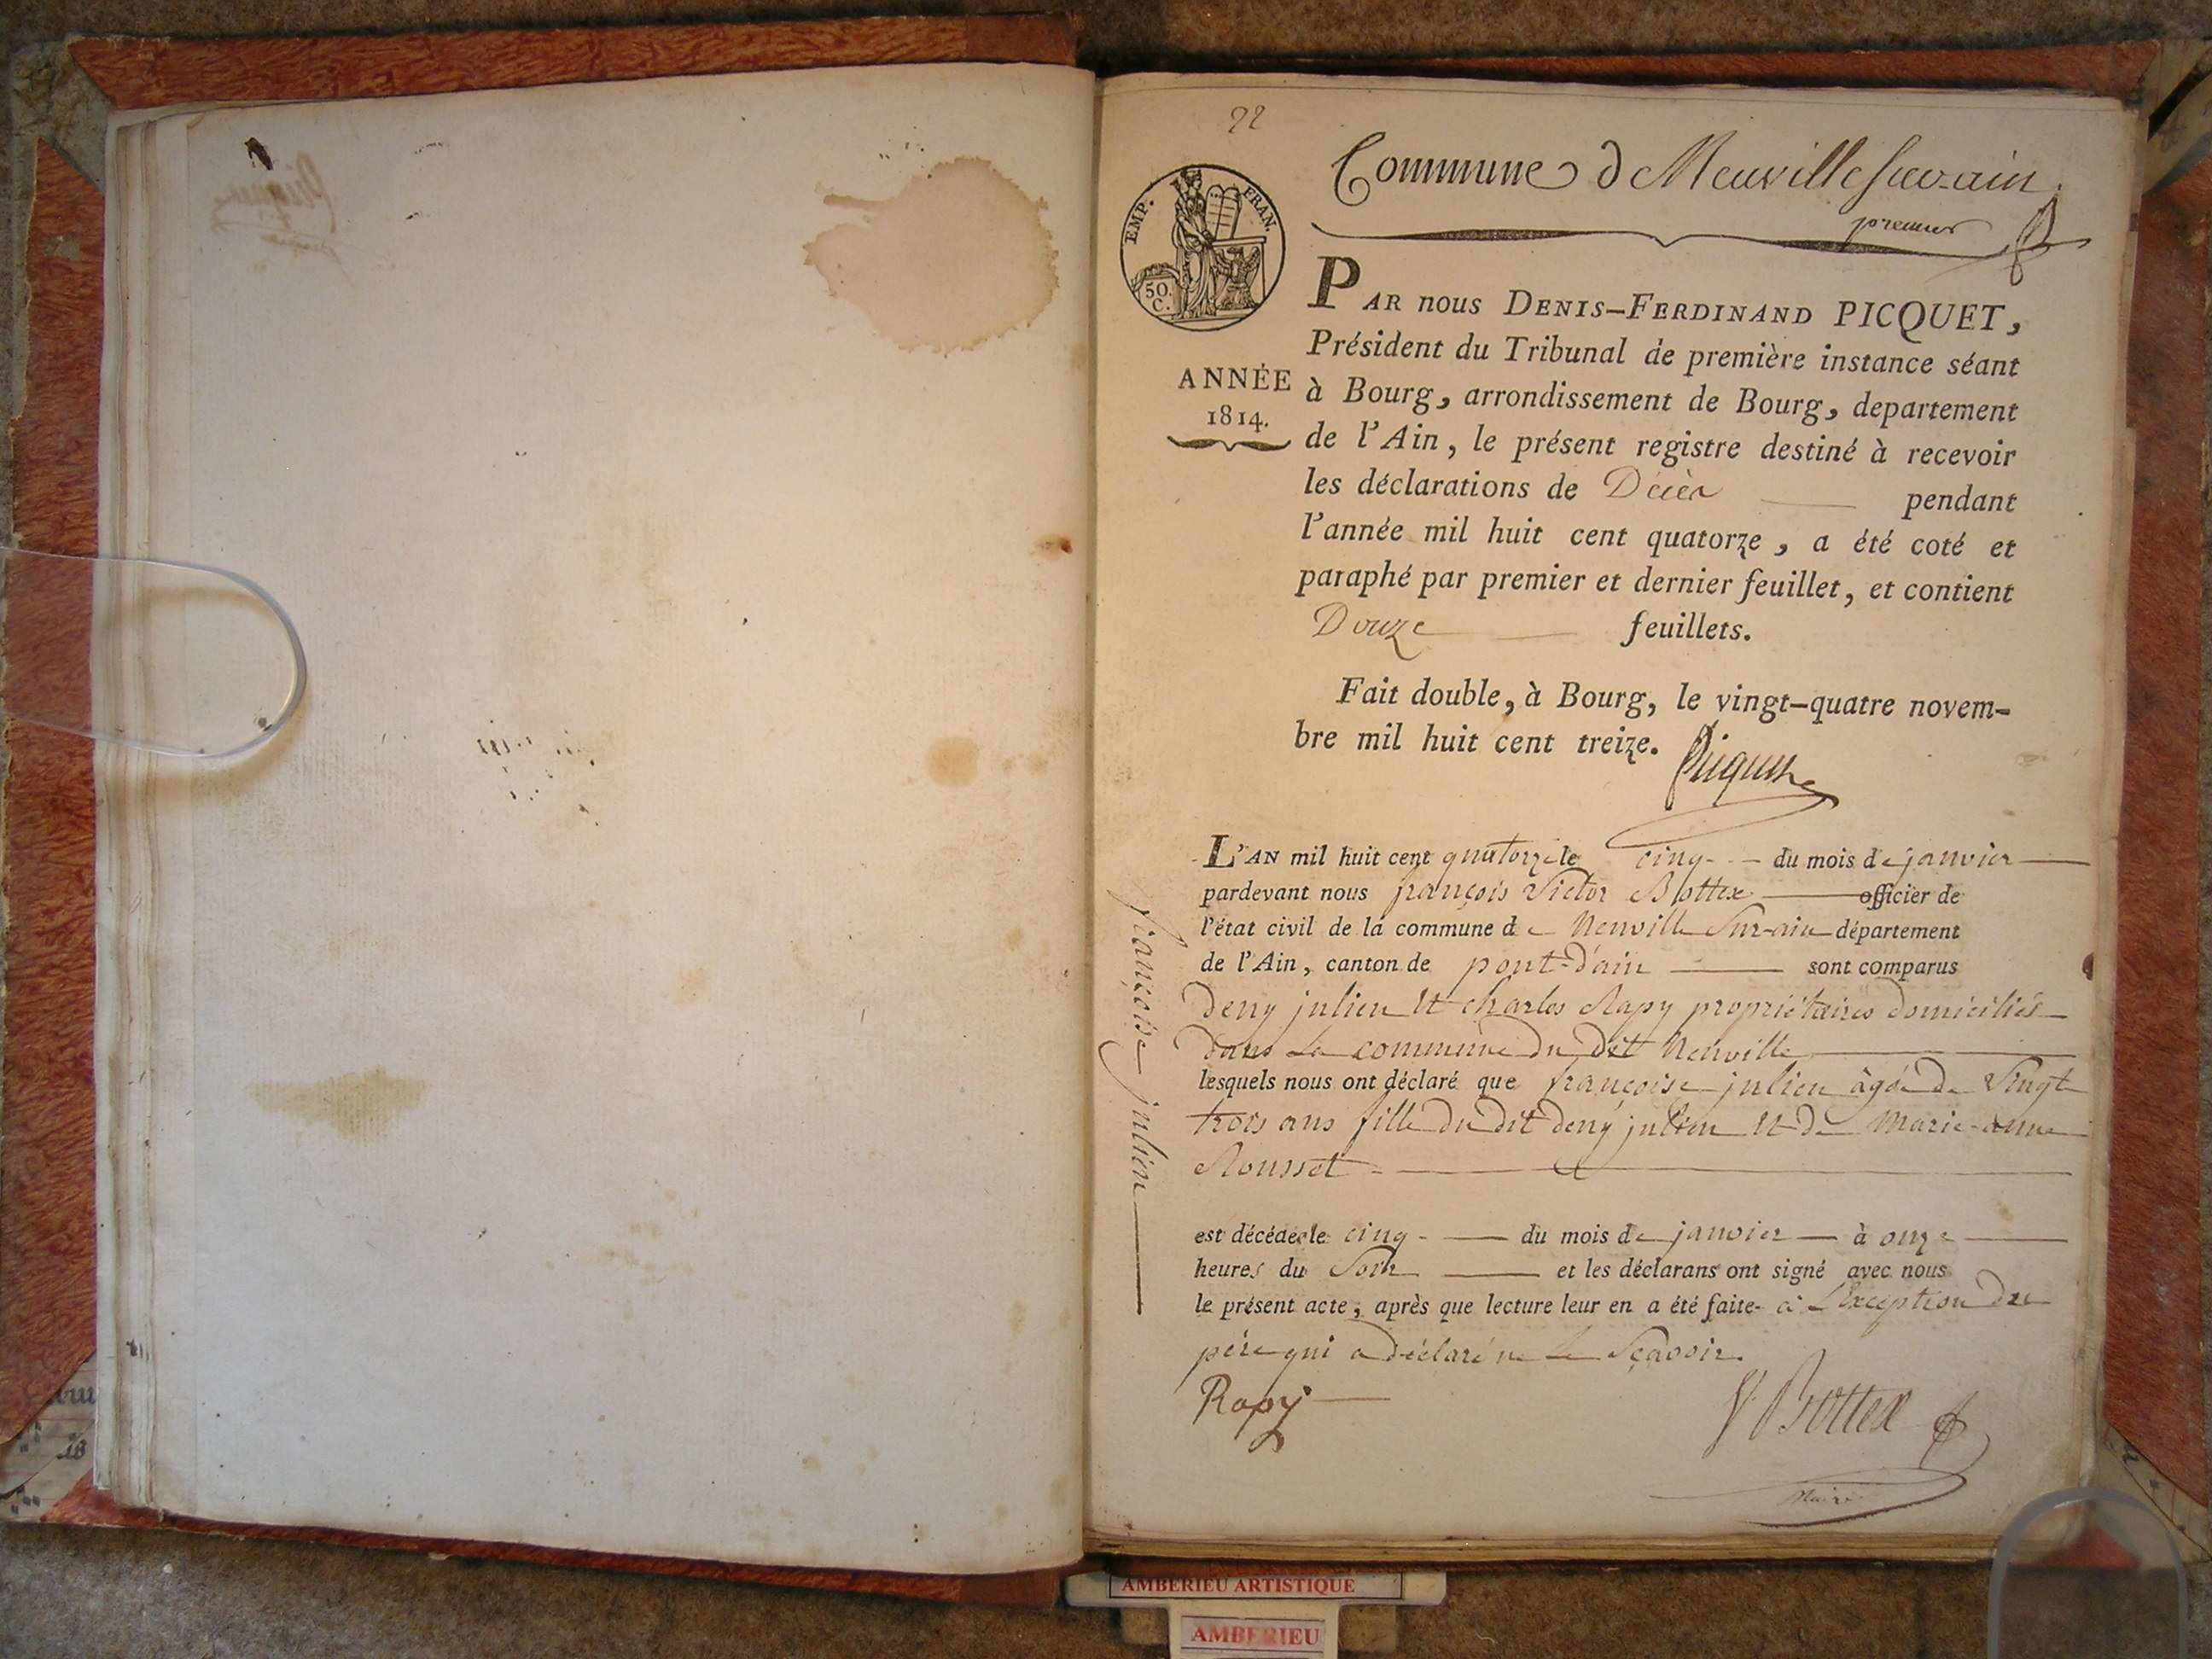 22
Commune de Neuville sur-ain
premier
EMP. FRAN.
50. C.
ANNÉE
1814.
PAR nous DENIS-FERDINAND PICQUET,
Président du Tribunal de première instance séant
à Bourg, arrondissement de Bourg, departement
de l'Ain, le présent registre destiné à recevoir
les déclarations de Décès pendant
l'année mil huit cent quatorze, a été coté et
paraphé par premier et dernier feuillet, et contient
Douze feuillets.
Fait double, à Bourg, le vingt-quatre novem-
bre mil huit cent treize. Picquet
L'AN mil huit cent quatorze le cinq du mois de janvier
pardevant nous françois Victor Bottex officier de
l'état civil de la commune de Neuville Sur-ain département
de l'Ain, canton de pont-d'ain sont comparus
deny julien et charles Rapy propriétaires domiciliés
dans La commune du dit Neuville
lesquels nous ont déclaré que françoise julien âgée de Vingt
trois ans fille du dit deny julien et de Marie-anne
Rousset
est décédée le cinq du mois de janvier à onze
heures du Soir et les déclarans ont signé avec nous
le présent acte, après que lecture leur en a été faite à L'Exception du
père qui a déclaré ne le Sçavoir.
Rapy
V Bottex
Maire
françoise julien
AMBERIEU ARTISTIQUE
AMBERIEU